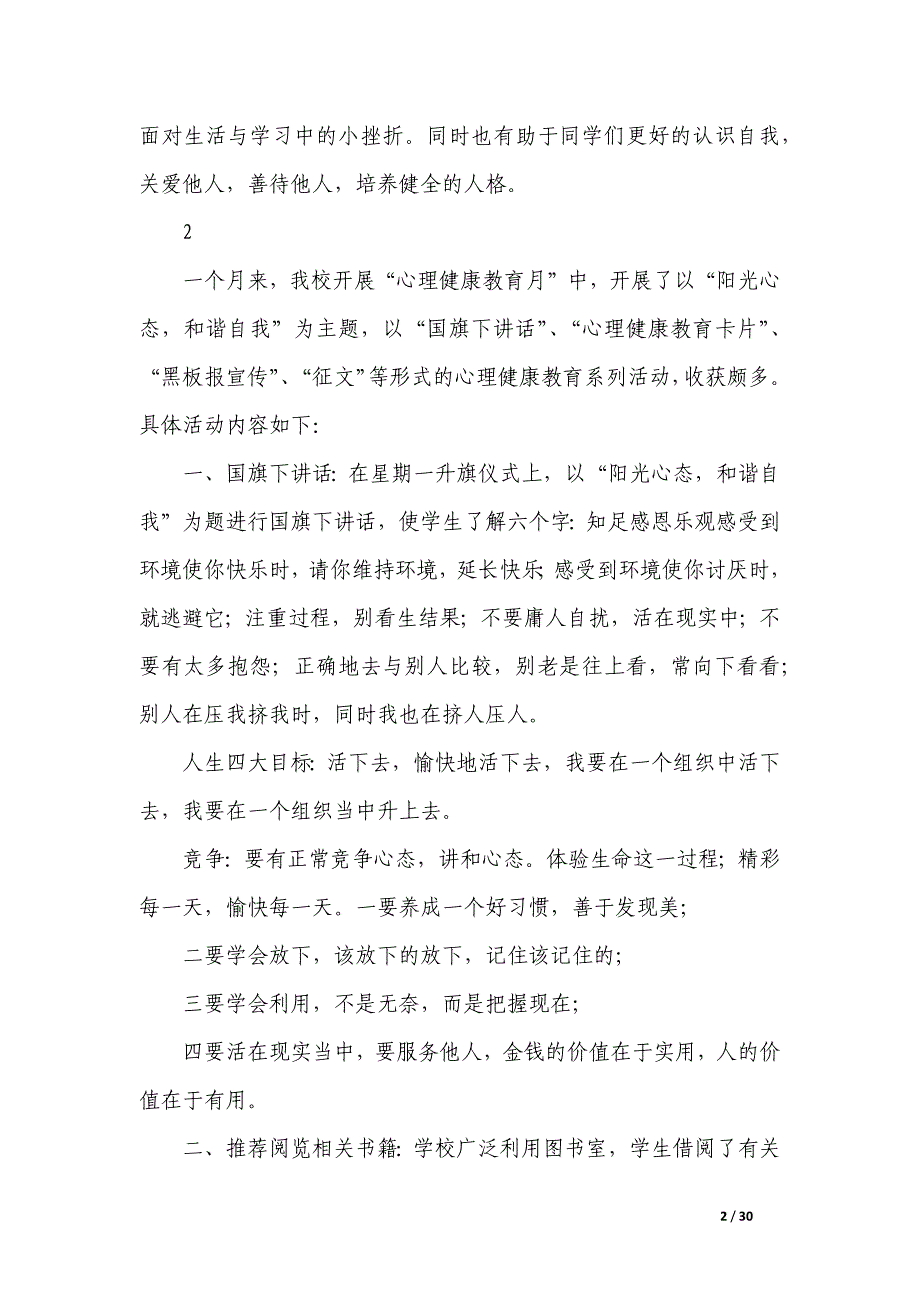 面对生活与学习中的小挫折。同时也有助于同学们更好的认识自我，
关爱他人，善待他人，培养健全的人格。
2
一个月来，我校开展“心理健康教育月”中，开展了以“阳光心
态，和谐自我”为主题，以“国旗下讲话”、“心理健康教育卡片”、
“黑板报宣传”、“征文”等形式的心理健康教育系列活动，收获颇多。
具体活动内容如下：
一、国旗下讲话：在星期一升旗仪式上，以“阳光心态，和谐自
我”为题进行国旗下讲话，使学生了解六个字：知足感恩乐观感受到
环境使你快乐时，请你维持环境，延长快乐；感受到环境使你讨厌时，
就逃避它；注重过程，别看生结果；不要庸人自扰，活在现实中；不
要有太多抱怨；正确地去与别人比较，别老是往上看，常向下看看；
别人在压我挤我时，同时我也在挤人压人。
人生四大目标：活下去，愉快地活下去，我要在一个组织中活下
去，我要在一个组织当中升上去。
竞争：要有正常竞争心态，讲和心态。体验生命这一过程；精彩
每一天，愉快每一天。一要养成一个好习惯，善于发现美；
二要学会放下，该放下的放下，记住该记住的；
三要学会利用，不是无奈，而是把握现在；
四要活在现实当中，要服务他人，金钱的价值在于实用，人的价
值在于有用。
二、推荐阅览相关书籍：学校广泛利用图书室，学生借阅了有关
2 / 30